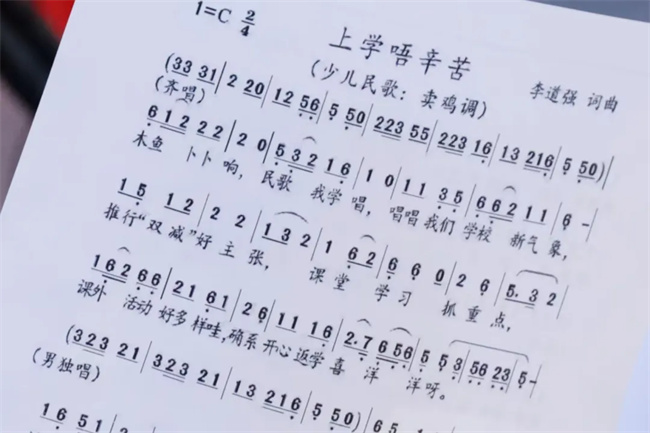 1=C 2/4
上学唔辛苦
(少儿民歌：卖鸡调)
李道强 词曲
(33 31 | 2 20 | 12 56 | 5 50 | 223 55 | 223 16 | 13 216 | 5 50) |
(齐唱)
612 22 | 2 0 | 532 16 | 1 0 | 11 35 | 662 11 | 6 - |
木鱼 卜卜 响, 民歌 我学 唱, 唱唱 我们 学校 新气 象,
15 12 | 2 2 | 132 | 1 62 | 6 6 0 | 2 6 | 5.32 |
推行“双减”好 主 张, 课堂 学习 抓重点,
162 66 | 21 61 | 2 6 | 11 16 | 2.7 656 | 5 53 | 56 23 | 5 - |
课外 活动 好多 样哇,确系 开心 返学 喜 洋 洋呀。
(323 21 | 323 21 | 13 216 | 5 50) |
(男独唱)
16 51 |